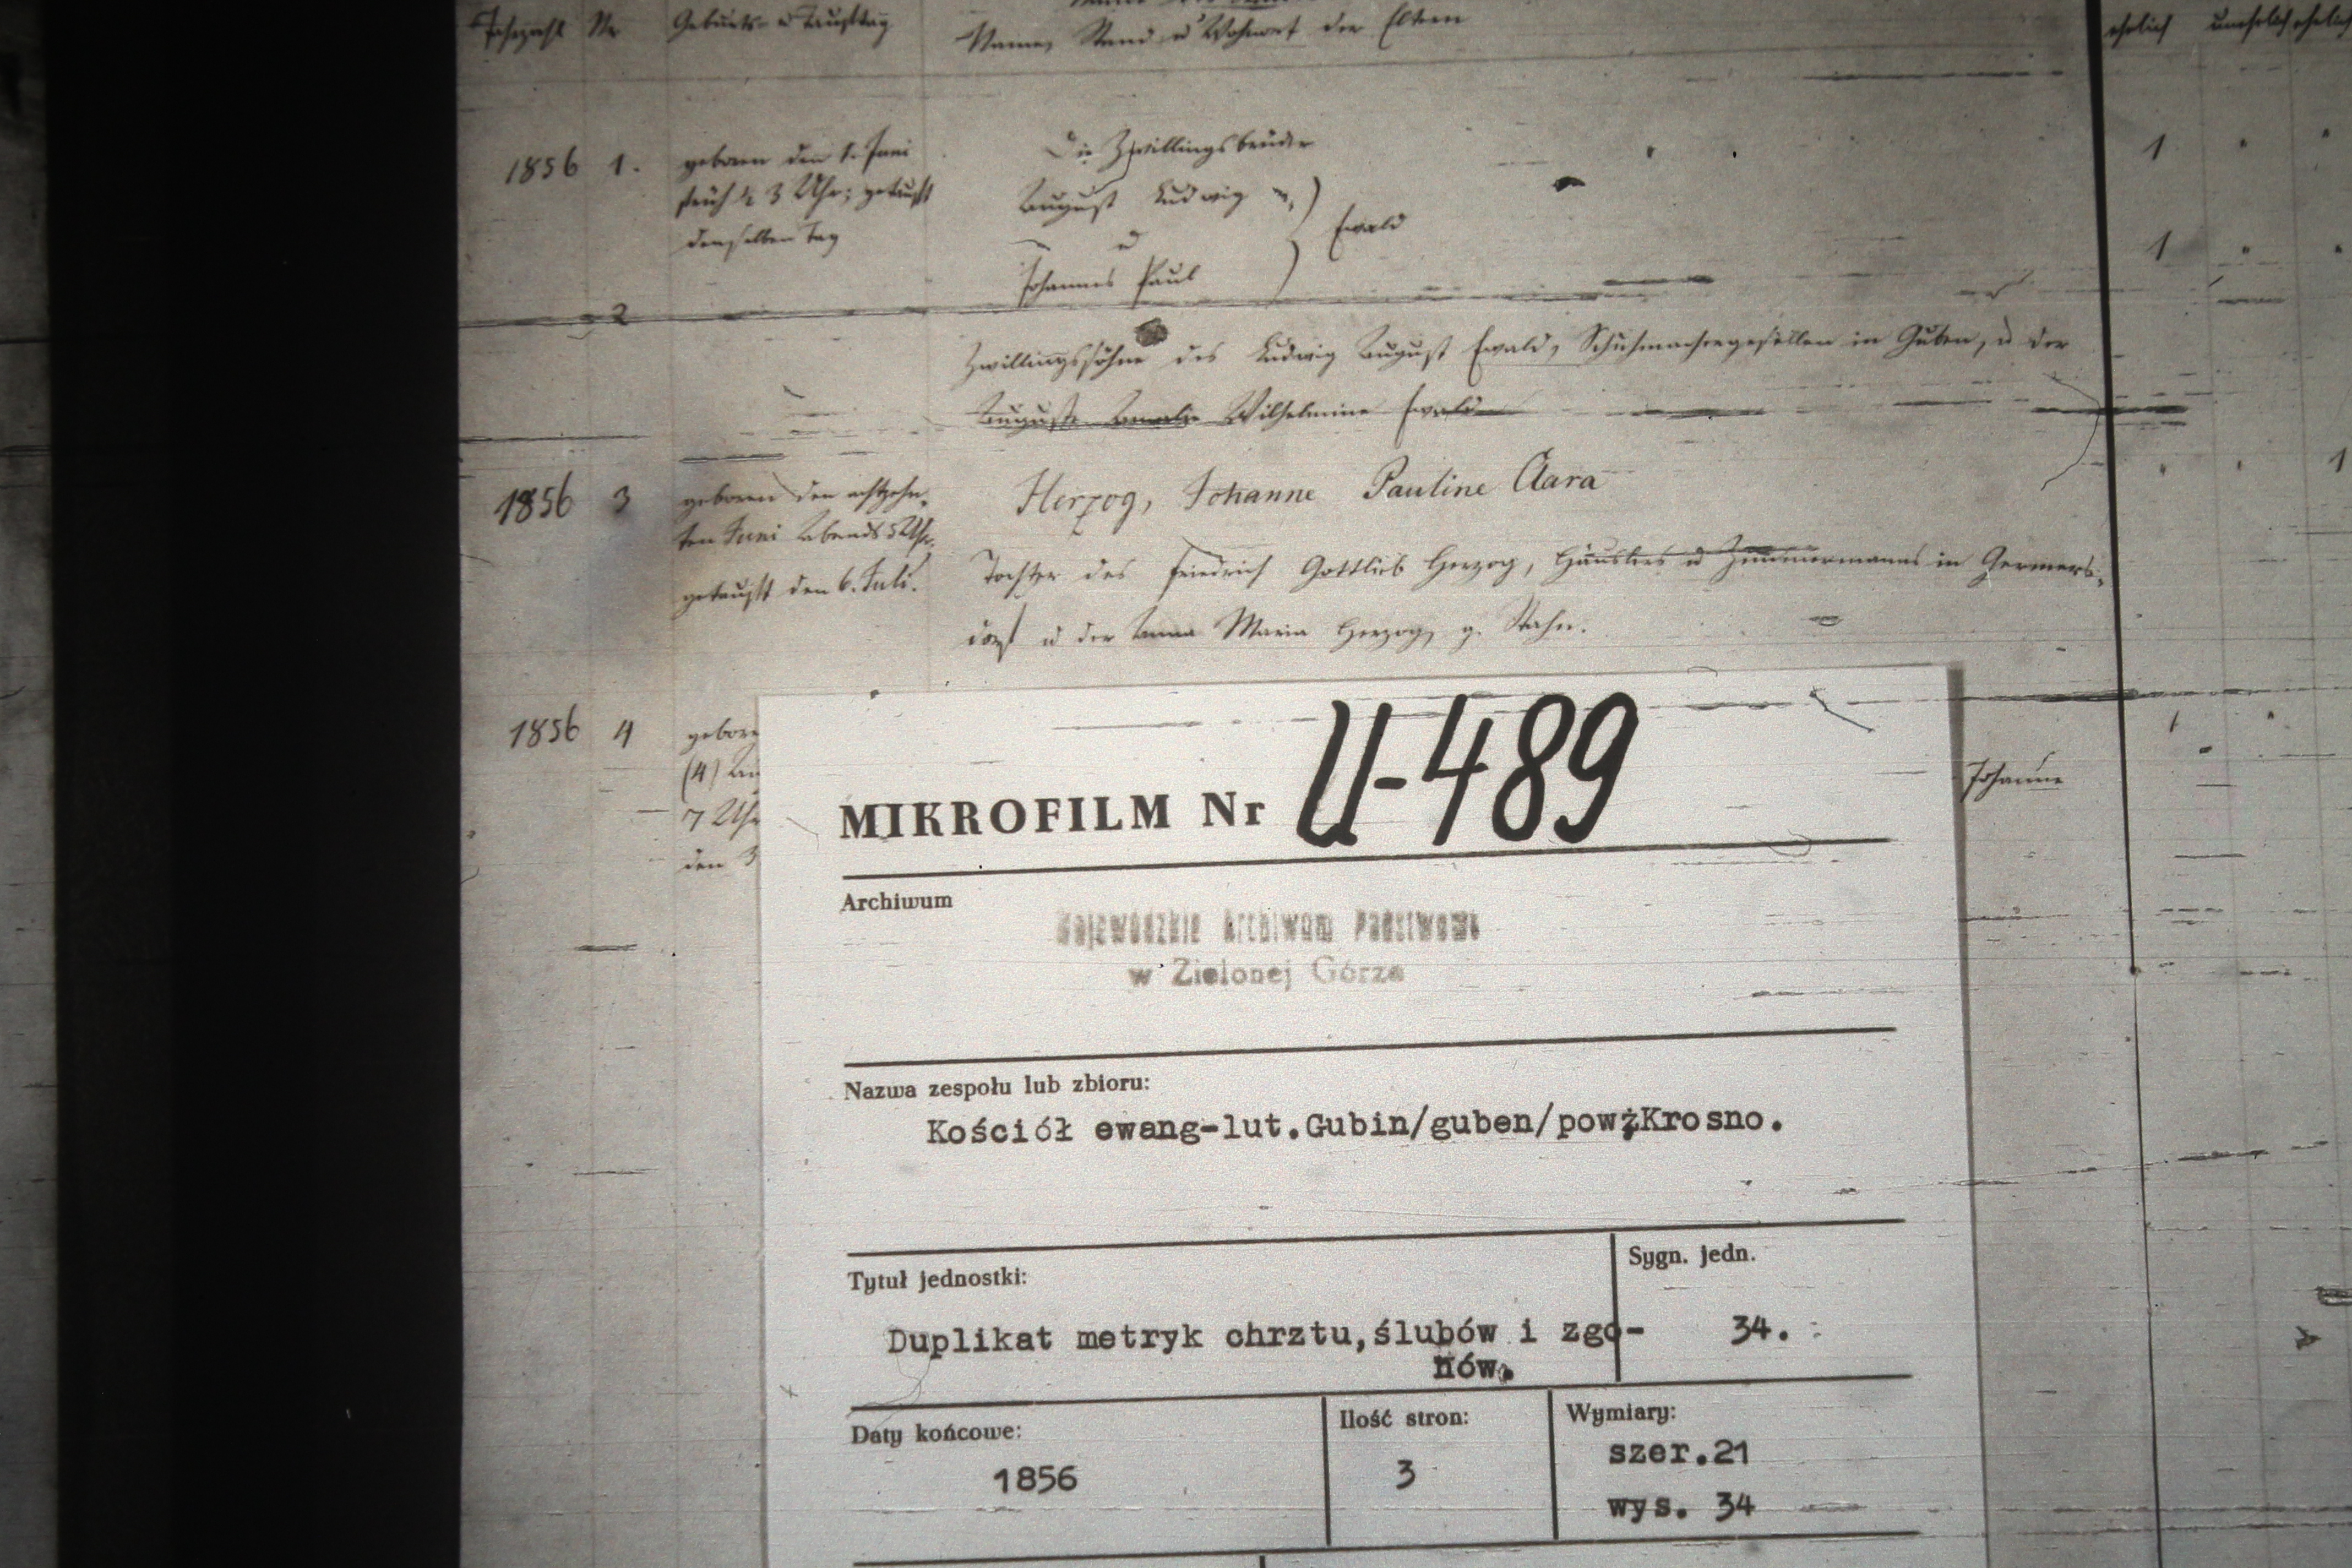 Jahrzahl Nr Geburts- u Tauftag
Name, Stand u Wohnort der Eltern
ehelich unehelich ehelich
1856 1. geboren den 1. Juni
früh ½ 3 Uhr; getauft
denselben Tag
Die Zwillingsbrüder
August Ludwig
u
Johannes Paul
Ewald
1
1
2
Zwillingssöhne des Ludwig August Ewald, Schuhmachergesellen in Guben, u der
Auguste Amalie Wilhelmine Ewald
1856 3 geboren den achtzehn-
ten Juni Abends 5 Uhr.
getauft den 6. Juli.
Herzog, Johanne Pauline Clara
Tochter des Friedrich Gottlieb Herzog, Häuslers u Zimmermanns in Germers-
dorf u der Anna Maria Herzog, g. Stahn.
1
1856 4 gebore
(4)
7 Uhr
den 3
Johanne
MIKROFILM Nr U-489
Archiwum
Wojewódzkie Archiwum Państwowe
w Zielonej Górze
Nazwa zespołu lub zbioru:
Kościół ewang-lut.Gubin/guben/powżKrosno.
Tytuł jednostki:
Sygn. jedn.
Duplikat metryk chrztu,ślubów i zgo-
nów.
34.
Daty końcowe:
Ilość stron:
Wymiary:
1856
3
szer.21
wys. 34